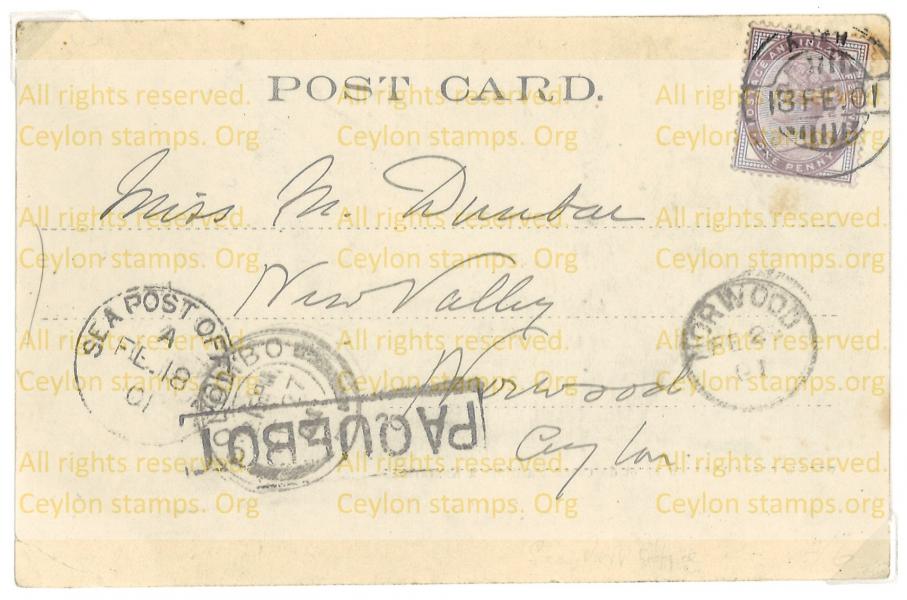 POST CARD.
POSTAGE AND INLAND REVENUE
ONE PENNY
18 FE 01
Miss M. Dunbar
New Valley
Norwood
Ceylon
SEA POST OF
A
FE.18
01
COLOMBO
PAQUEBOT
NORWOOD
FE 2
01
All rights reserved. All rights reserved. All rights reserved.
Ceylon stamps. Org Ceylon stamps. Org Ceylon stamps. Org
All rights reserved. All rights reserved. All rights reserved.
Ceylon stamps. Org Ceylon stamps. Org Ceylon stamps. Org
All rights reserved. All rights reserved. All rights reserved.
Ceylon stamps. Org Ceylon stamps. Org Ceylon stamps. Org
All rights reserved. All rights reserved. All rights reserved.
Ceylon stamps. Org Ceylon stamps. Org Ceylon stamps. Org